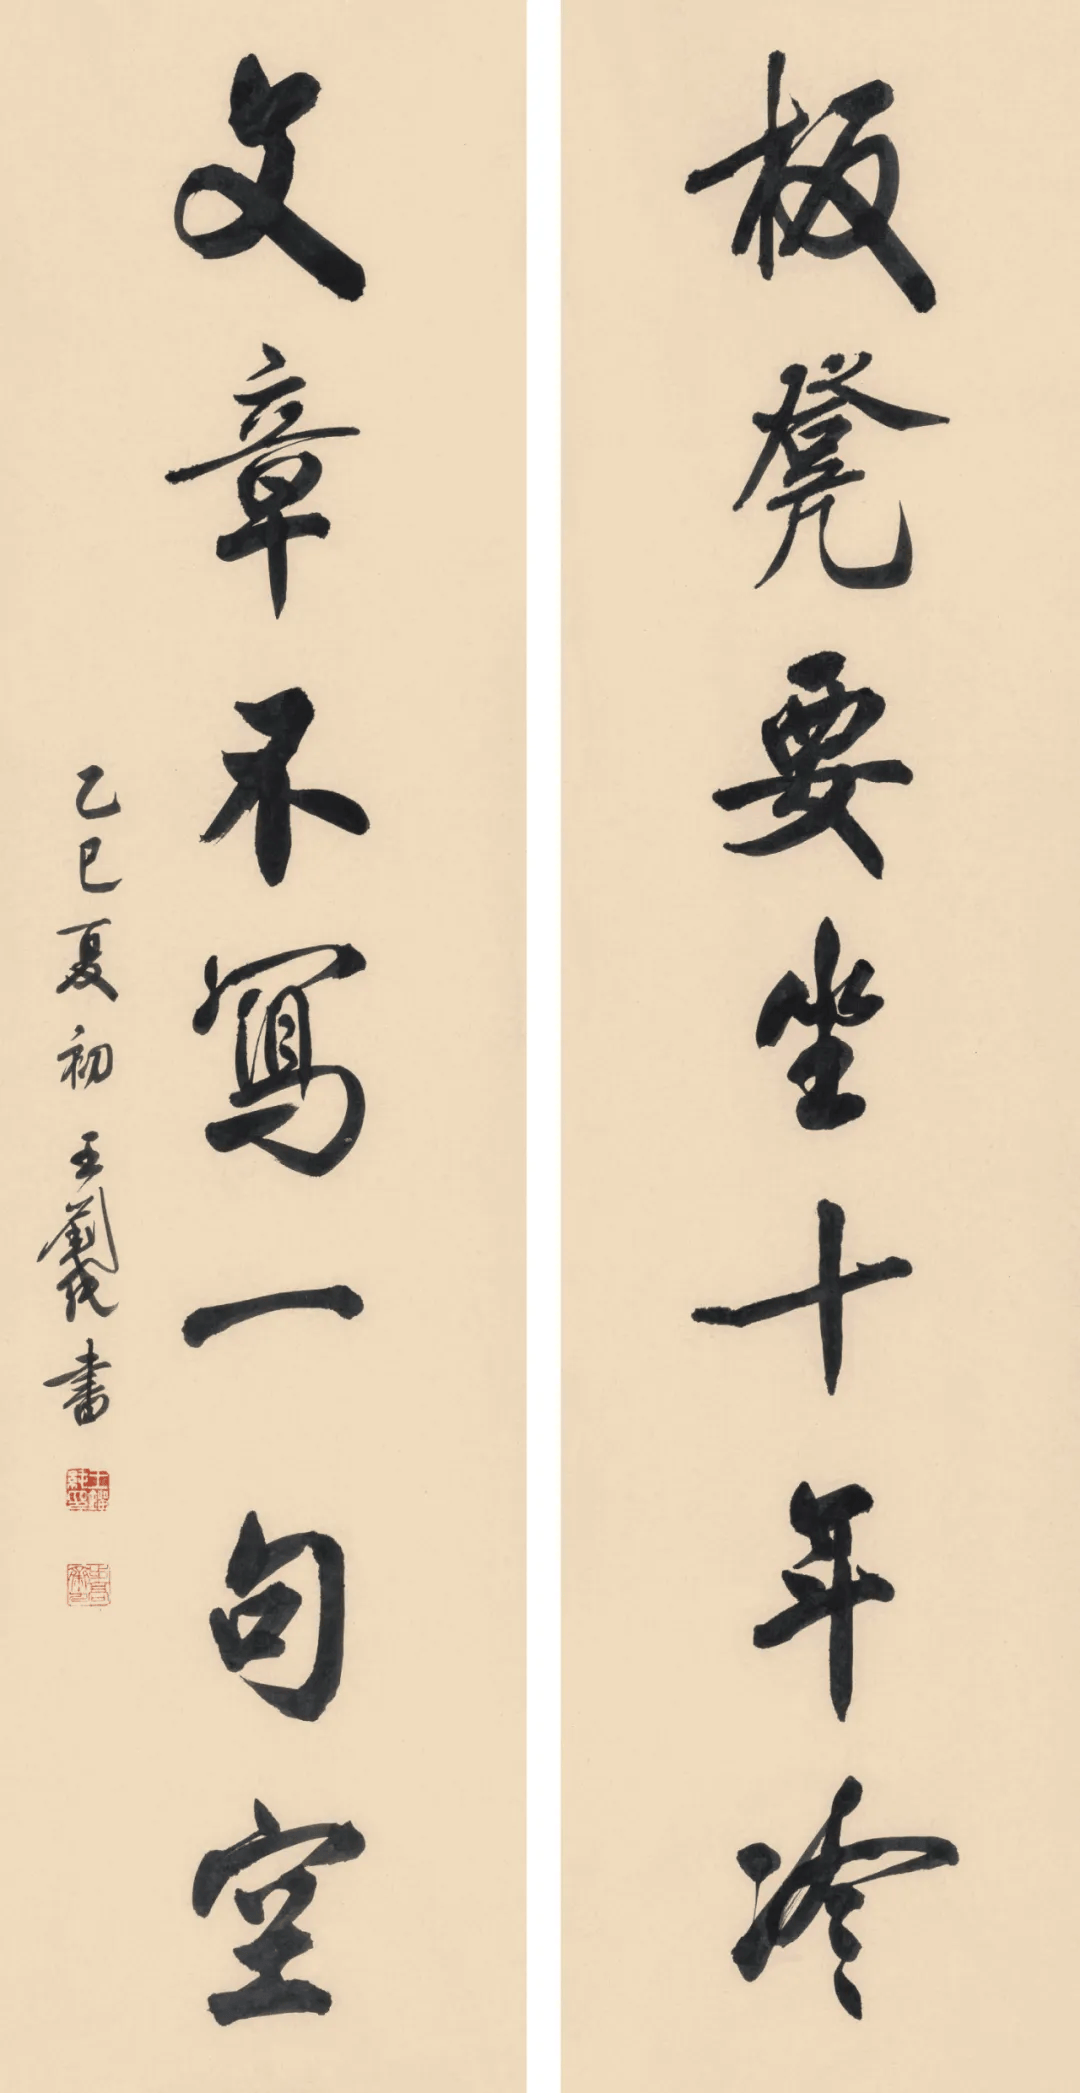 板凳要坐十年冷
文章不寫一句空
乙巳夏初 王 書